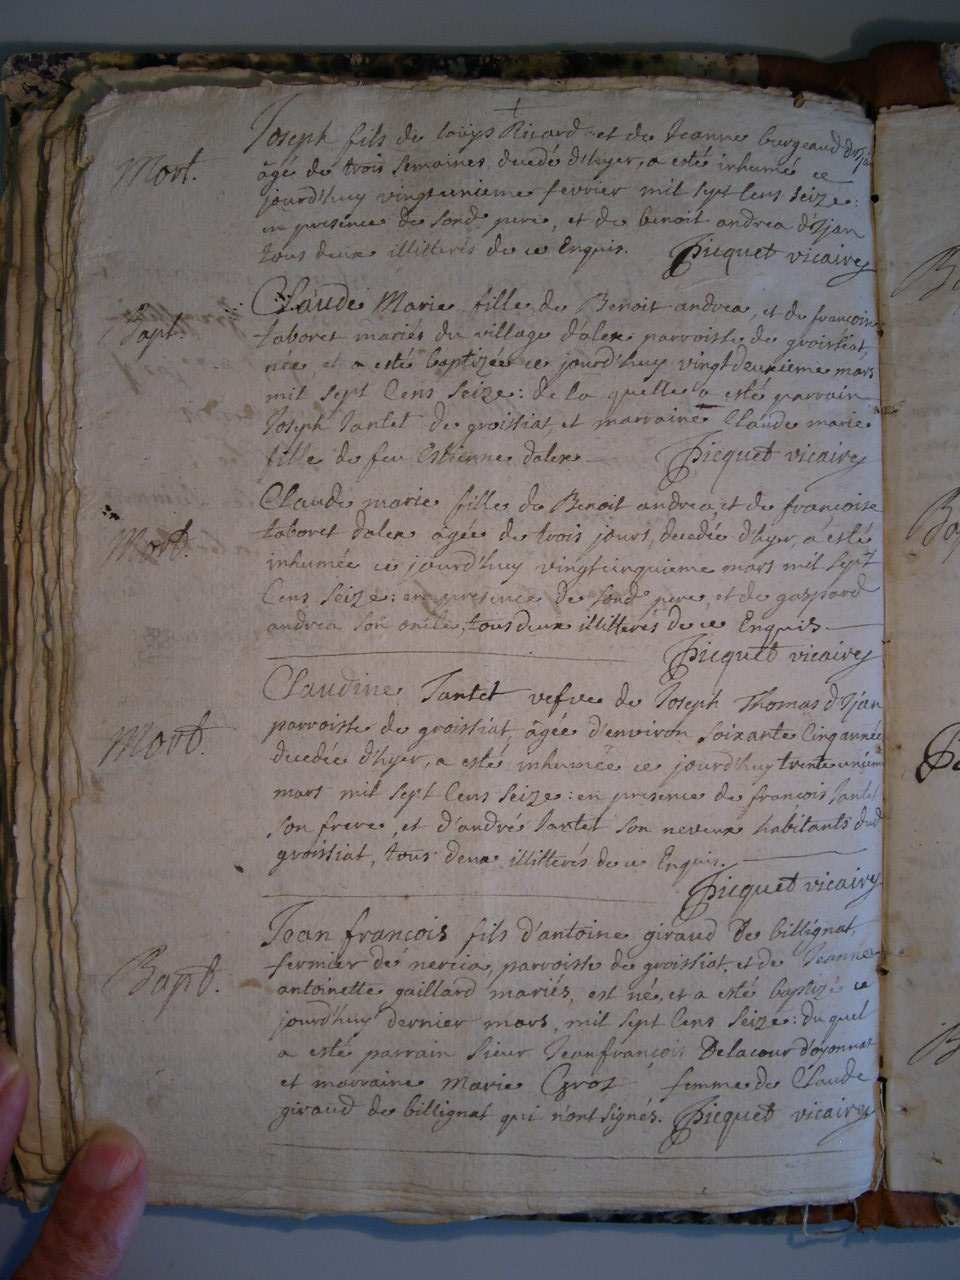 Mort.
Joseph fils de loüys Ricard et de Jeanne burgeaud d'Ijan
âgé de trois semaines decedé d'hyer, a esté inhumé ce
jourd'huy vingtunieme fevrier mil sept Cens seize:
en presence de sond. pere, et de benoit andrea d'Ijan
tous deux illitterés de ce Enquis. Picquet vicaire
Bapt.
Claude Marie fille de Benoit andrea, et de françoise
taboret mariés du village d'alex parroisse de groissiat,
née, et a esté baptizée ce jourd'huy vingtdeuxieme mars
mil sept Cens seize: de la quelle a esté parrain
Joseph Jantet de groissiat, et marraine Claude marie
fille de feu Estienne dalex Picquet vicaire
Mort.
Claude marie fille de Benoit andrea et de françoise
taboret dalex agée de trois jours, decedée d'hyer, a esté
inhumée ce jourd'huy vingtcinquieme mars mil sept
Cens seize: en presence de sond. pere, et de gaspard
andrea son oncle, tous deux illitterés de ce Enquis.
Picquet vicaire
Mort.
Claudine Jantet vefve de Joseph Thomas d'Ijan
parroisse de groissiat, âgée d'environ soixante Cinq années
decedée d'hyer, a esté inhumée ce jourd'huy trente unieme
mars mil sept Cens seize: en presence de françois Jantet
son frere, et d'andré Jantet son neveux habitants dud.
groissiat, tous deux illitterés de ce Enquis.
Picquet vicaire
Bapt.
Jean françois fils d'antoine giraud de billignat,
fermier de nercia, parroisse de groissiat, et de Jeanne
antoinette gaillard mariés, est né, et a esté baptizé ce
jourd'huy dernier mars, mil sept Cens seize: du quel
a esté parrain sieur Jeanfrançois Delacour d'oyonnax
et marraine Marie Groz femme de Claude
giraud de billignat qui n'ont signés. Picquet vicaire